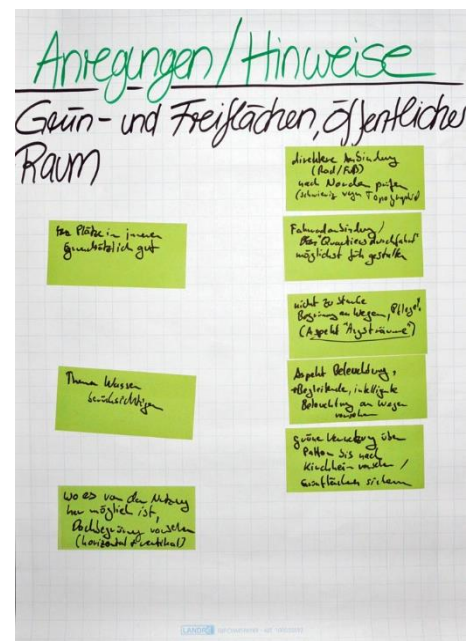 Anregungen/Hinweise
Grün- und Freiflächen, öffentlicher
Raum
Plätze im inneren
grundsätzlich gut
Thema Wasser
berücksichtigen
Wo es von der Nutzung
her möglich ist,
Dachbegrünung vorsehen
(horizontal + vertikal)
direktere Anbindung
(Rad/Fuß)
nach Norden prüfen
(schwierig wegen Topographie)
Fahrradanbindung/
"Quartiersdurchfahrt"
möglichst früh gestalten
nicht zu starke
Begrünung an Wegen, Pflege!
(Aspekt "Angsträume")
Aspekt Beleuchtung,
Begleitende, intelligente
Beleuchtung an Wegen
vorsehen
grüne Vernetzung über
bis nach
Kirchheim vorsehen /
Grünflächen sichern
LANDSIEDLUNG